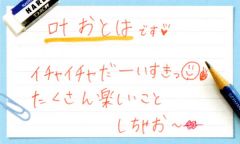 叶 おとは です♡
イチャイチャだーいすきっ
たくさん楽しいこと
しちゃお〜